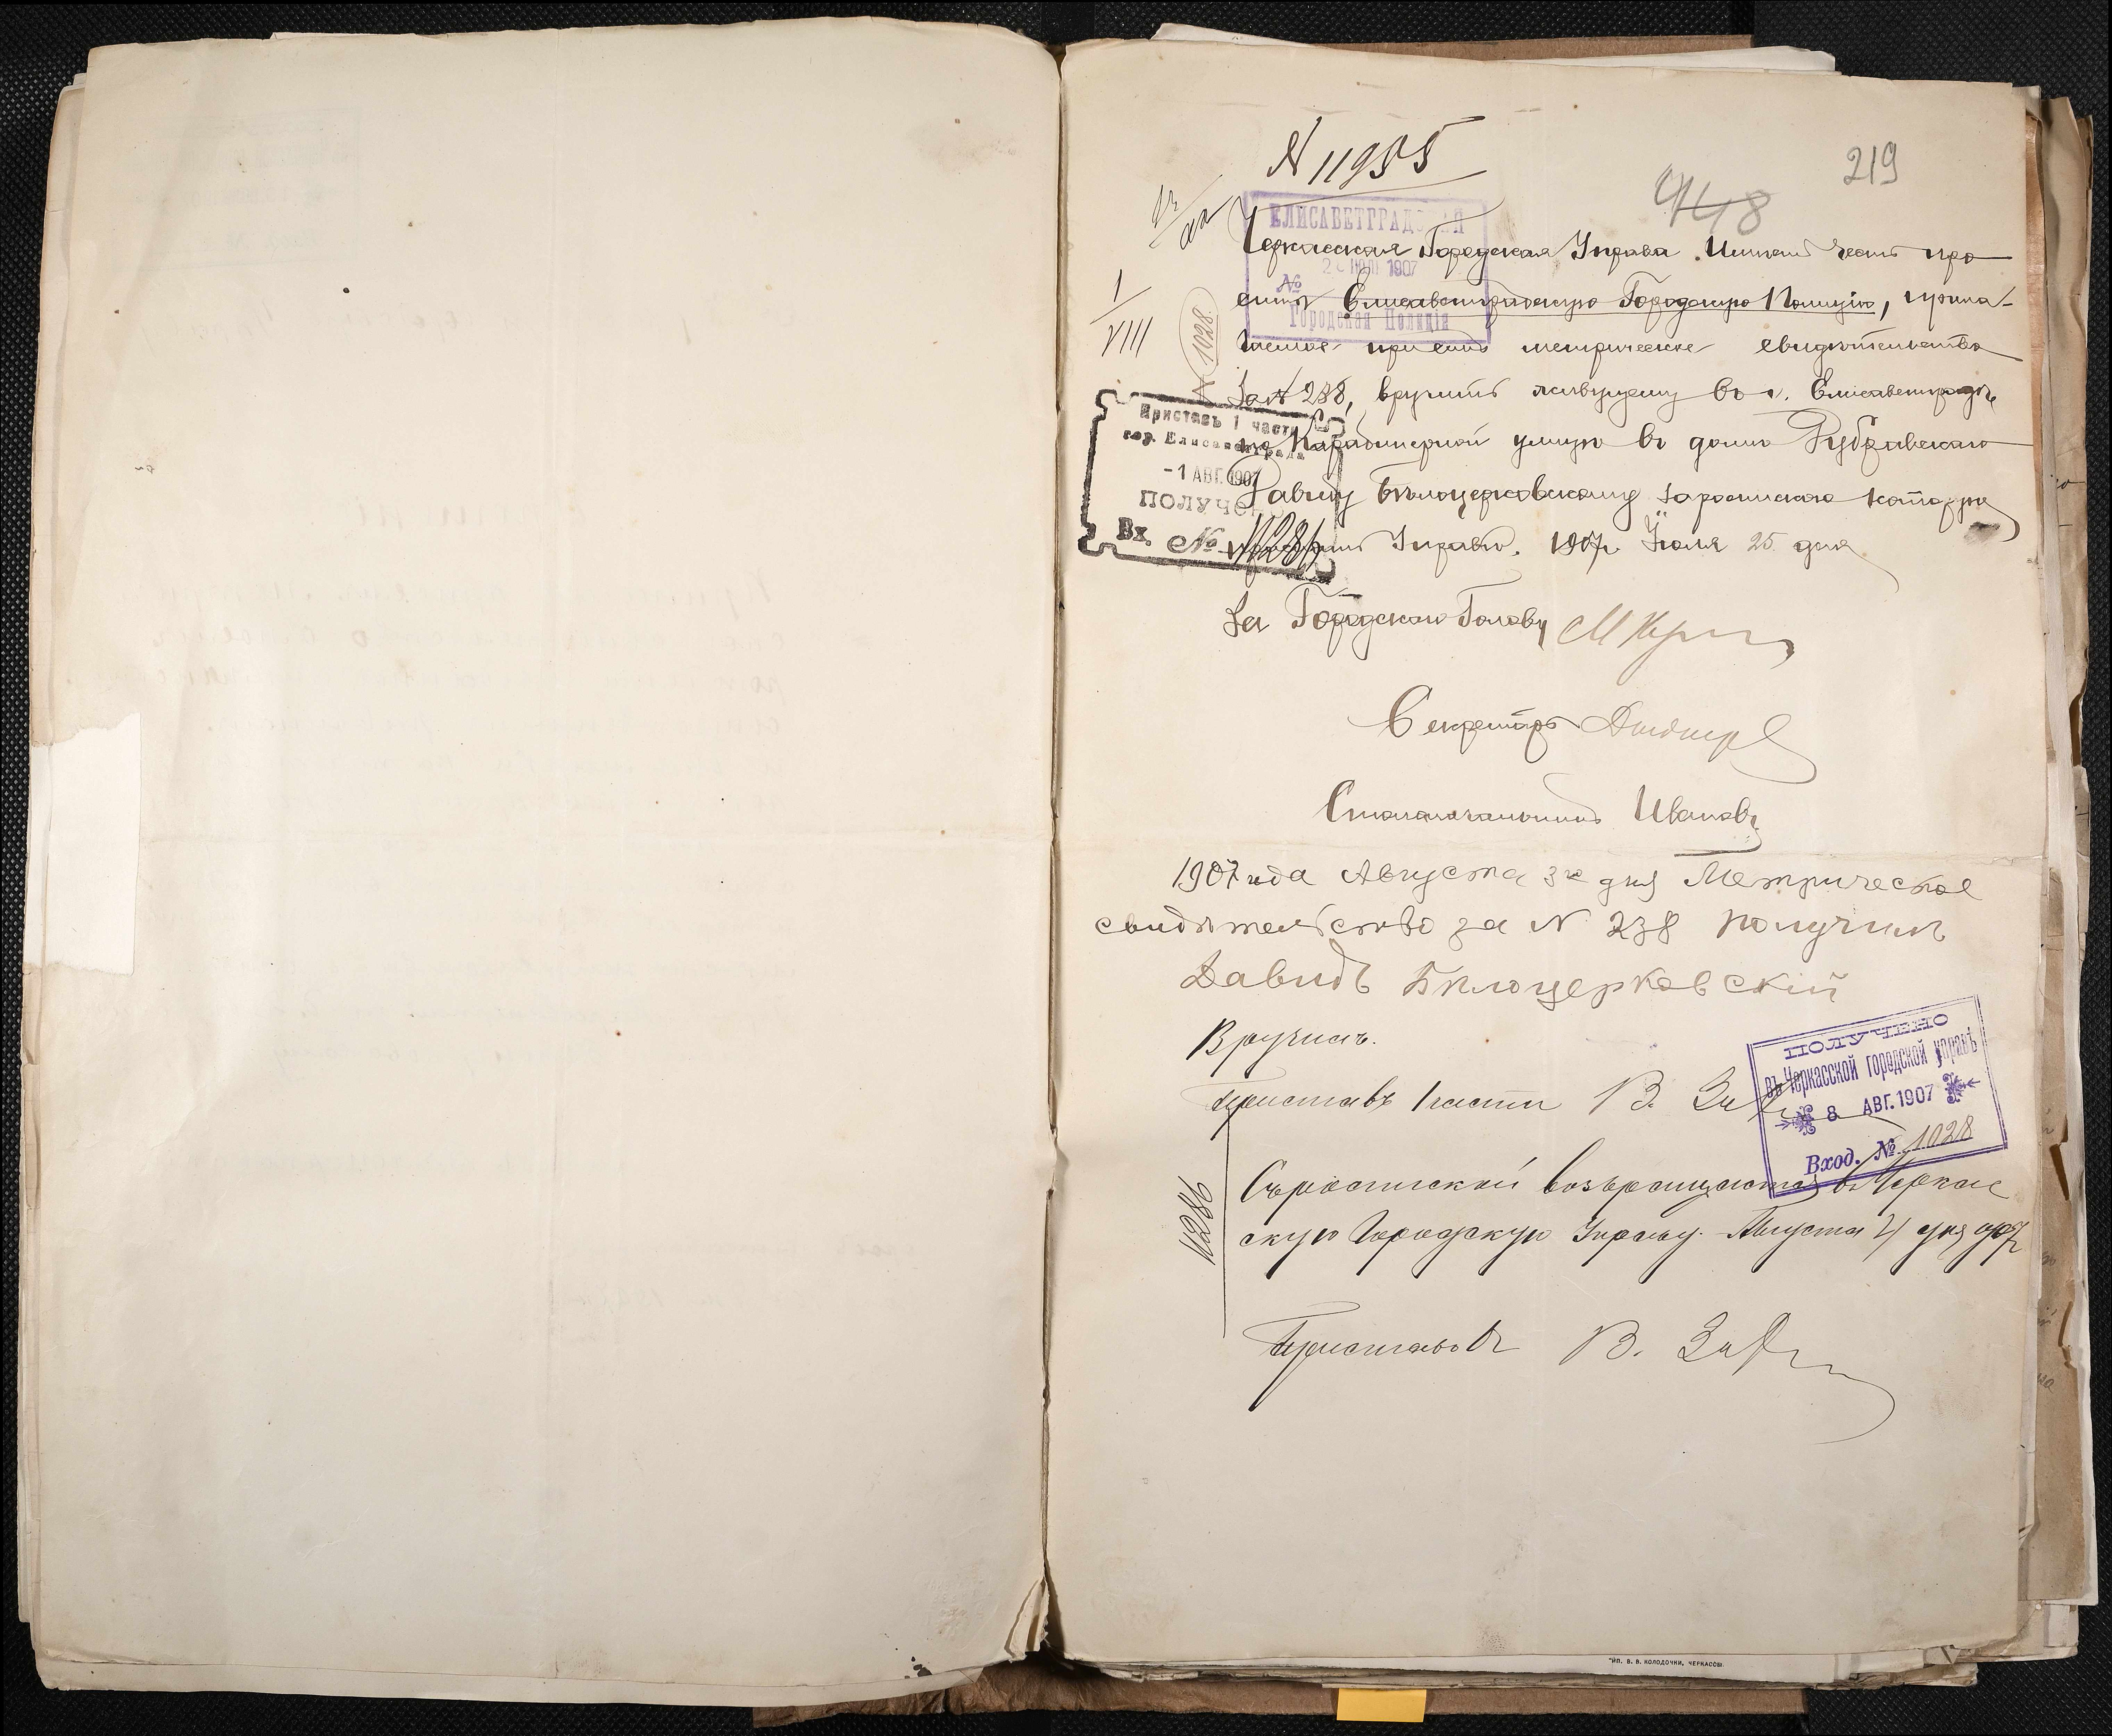 N 11955
219
448
ЕЛИСАВЕТГРАДСКАЯ
1907
№
Городская Полиція
Черкасская Городская Управа имѣетъ честь про
ситъ Елисаветградскую Городскую Полицію, прила-
гаемое при семъ метрическое свидѣтельство
за N 238, вручить живущему въ г. Елисаветградѣ,
по улицѣ въ домѣ
Давиду Бѣлоцерковскому росписка котораго
Управѣ. 1907 г. Іюля 25 дня
I
VIII
N 1028
Приставъ 1 части
гор. Елисаветграда
-1 АВГ. 1907
ПОЛУЧЕНО
Вх. № 11286
За Городского Голову
Секретарь
Столоначальникъ Ивановъ
1907 года Августа 3го дня Метрическое
свидѣтельство за N 238 получилъ
Давидъ Бѣлоцерковскій
Вручилъ.
Приставъ 1 части В.
ПОЛУЧЕНО
въ Черкасской городской управѣ
8 АВГ. 1907
Вход. № 1028
11286
Съ роспиской возвращается въ Черкас
скую Городскую Управу. Августа 4 дня 907 г.
Приставъ В.
ТИП. В. В. КОЛОДОЧКИ, ЧЕРКАССЫ